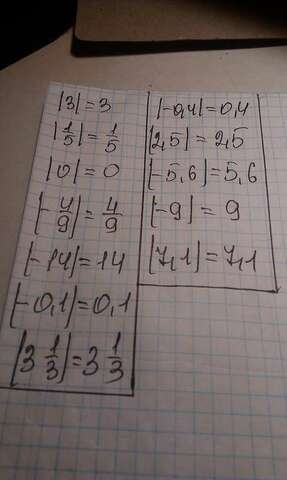 |3|=3
|1/5|=1/5
|0|=0
|-4/9|=4/9
|-14|=14
|-0,1|=0,1
|3 1/3|=3 1/3
|-0,4|=0,4
|2,5|=2,5
|-5,6|=5,6
|-9|=9
|7,1|=7,1